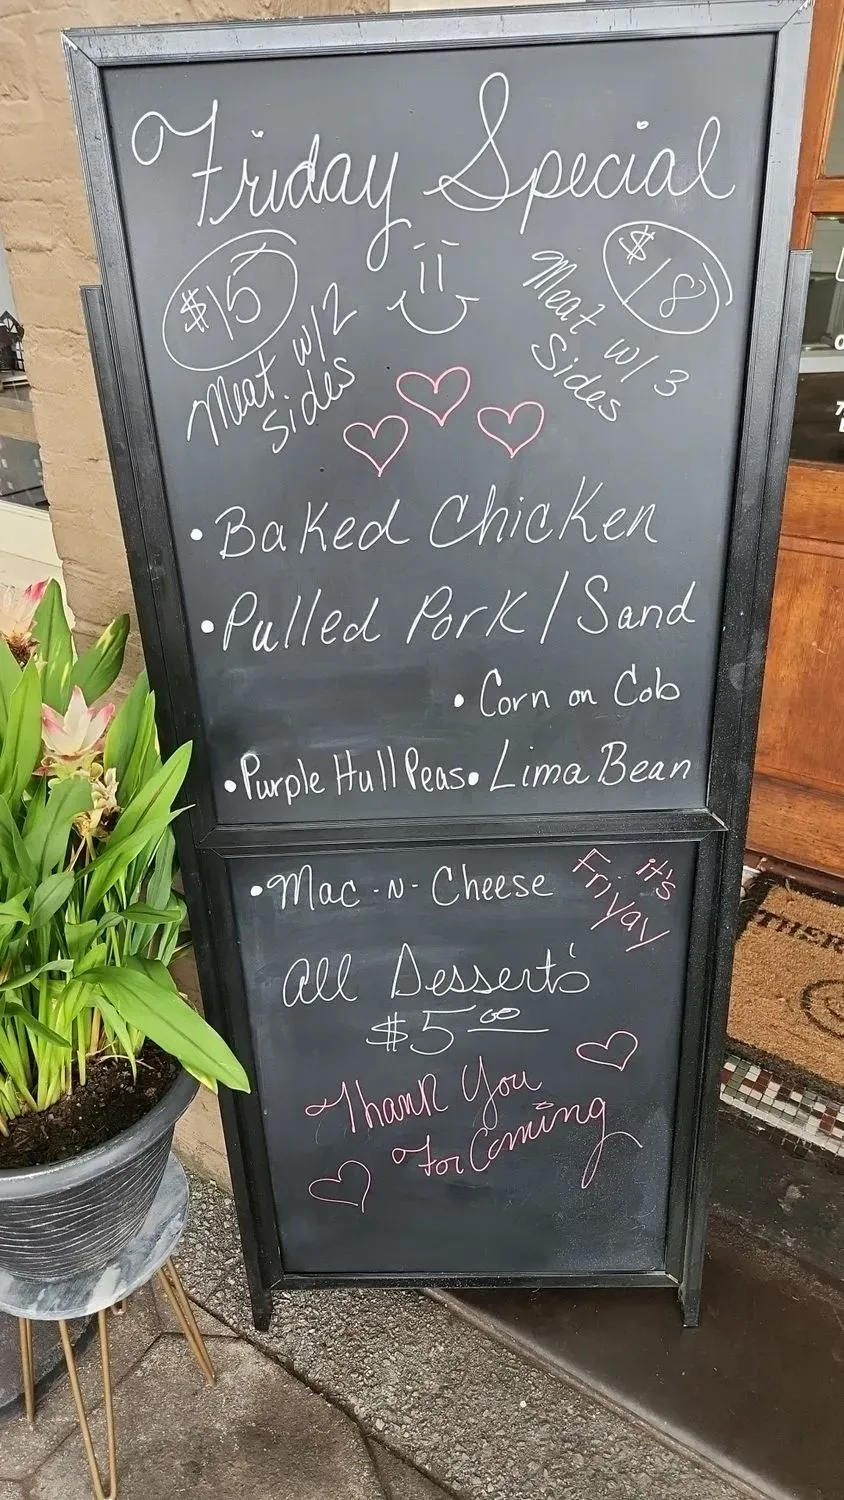 Friday Special
$15
Meat w/2
sides
$18
Meat w/ 3
Sides
• Baked Chicken
• Pulled Pork / Sand
• Corn on Cob
• Purple Hull Peas • Lima Bean
• Mac -N- Cheese
it's
Friyay
All Dessert's
$5.00
Thank You
For Coming
THER